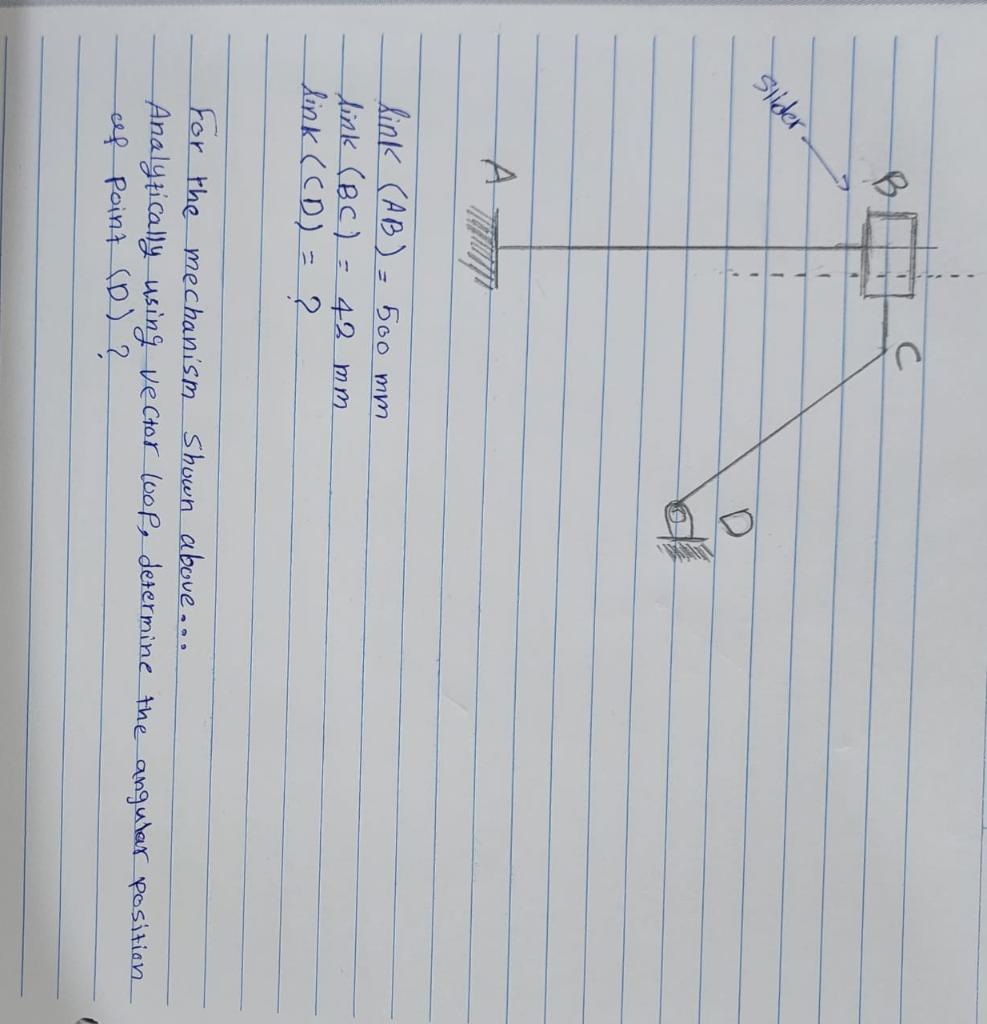 Slider
B
C
D
A
link (AB) = 500 mm
link (BC) = 42 mm
link (CD) = ?
For the mechanism shown above...
Analytically using vector loop, determine the angular position
of point (D) ?